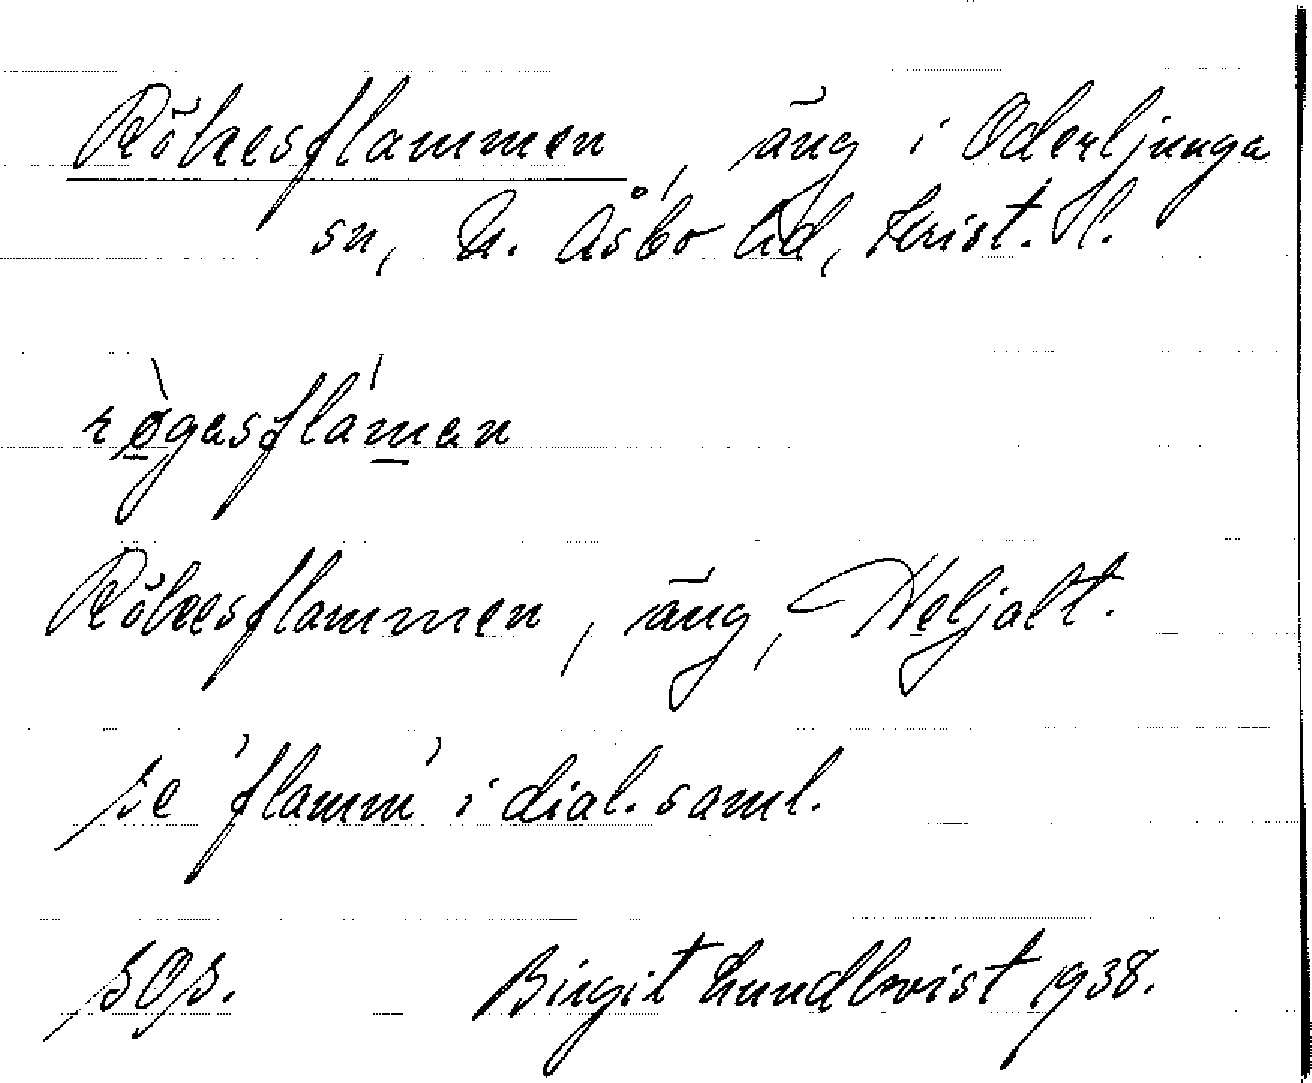 Rökesflammen, äng i Oderljunga
sn, N. Åsbo hd, Krist. l.
røgasflaman
Rökesflammen, äng, Heljalt.
se 'flamm' i dial. saml.
SOS. Birgit Lundkvist 1938.